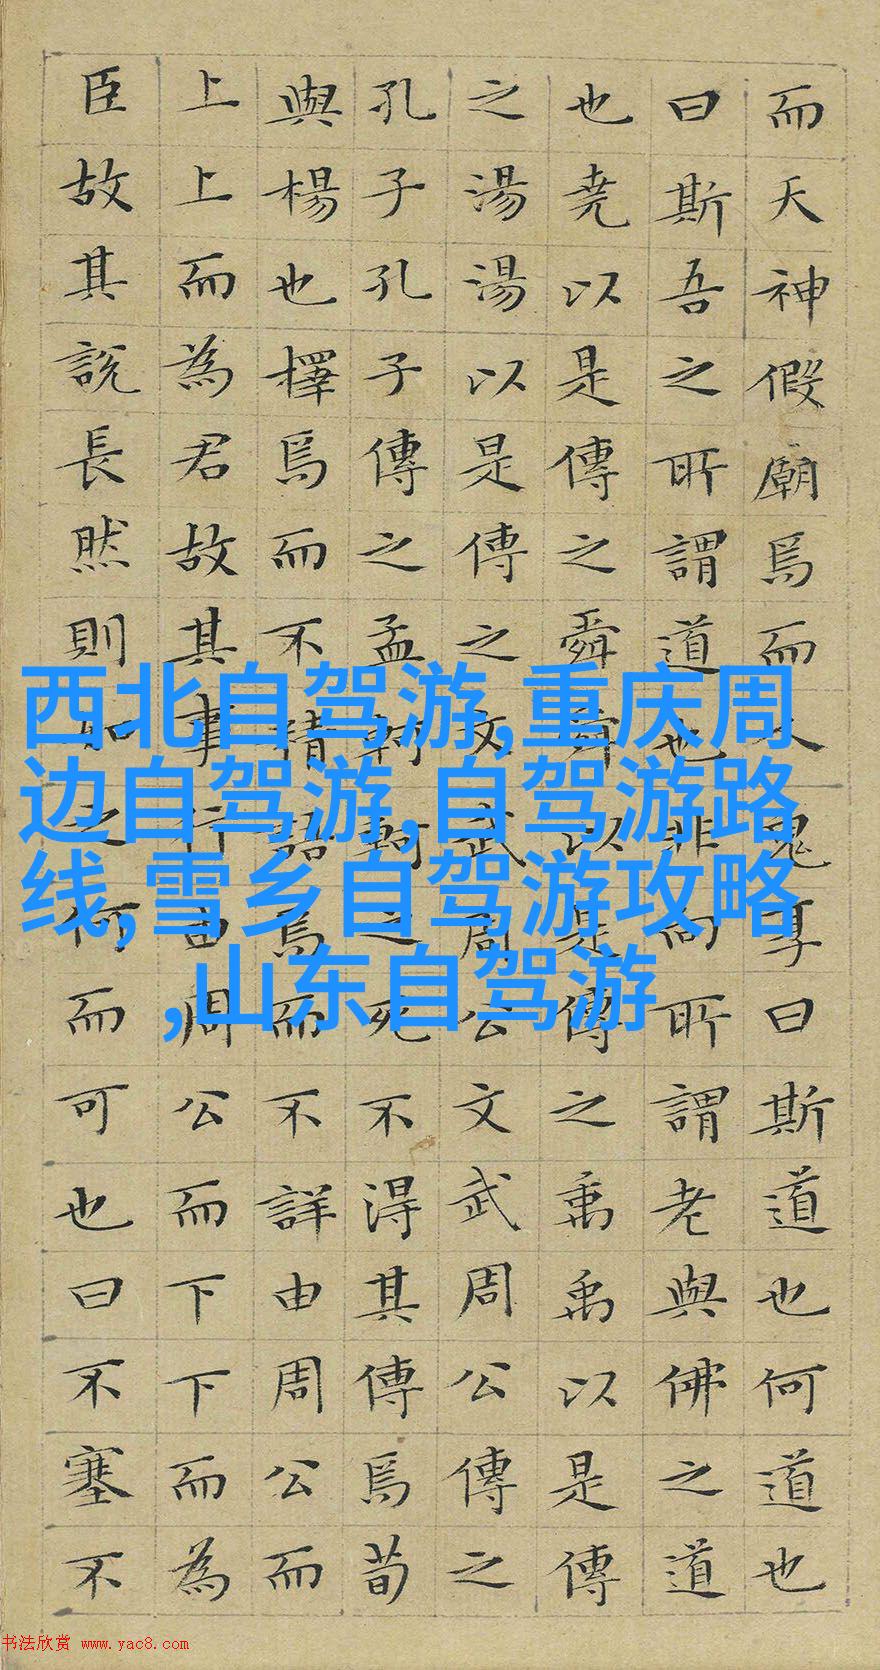 而天神假廟焉而人鬼享曰斯道也何道也
曰斯吾之所謂道也非向所謂老與佛之道
也堯以是傳之舜舜以是傳之禹禹以是傳
之湯湯以是傳之文武周公文武周公傳之
孔子孔子傳之孟軻軻之死不得其傳焉荀
與楊也擇焉而不精語焉而不詳由周公而
上上而為君故其事行由周公而下下而為
臣故其說長然則如之何而可也曰不塞不
西北自驾游,重庆周
边自驾游,自驾游路
线,雪乡自驾游攻略
,山东自驾游
书法欣赏 www.yac8.com